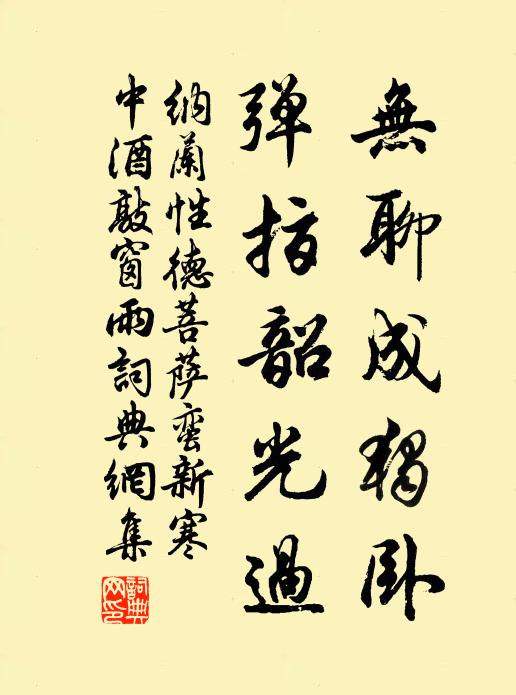 無聊成獨臥
彈指韶光過
納蘭性德菩薩蠻新寒
中酒敲窗雨詞典網集